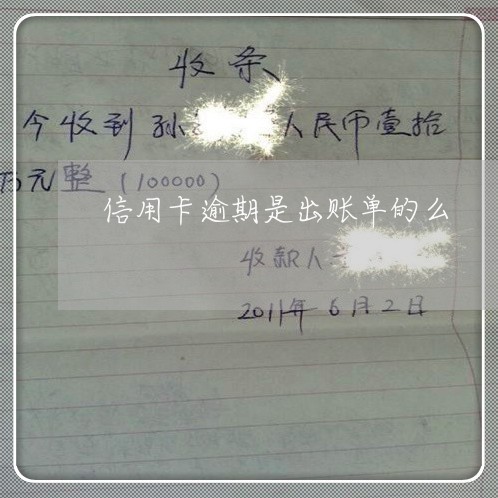 收条
今收到孙 人民币壹拾
万元整（100000）
信用卡逾期是出账单的么
收款人
2011年6月2日